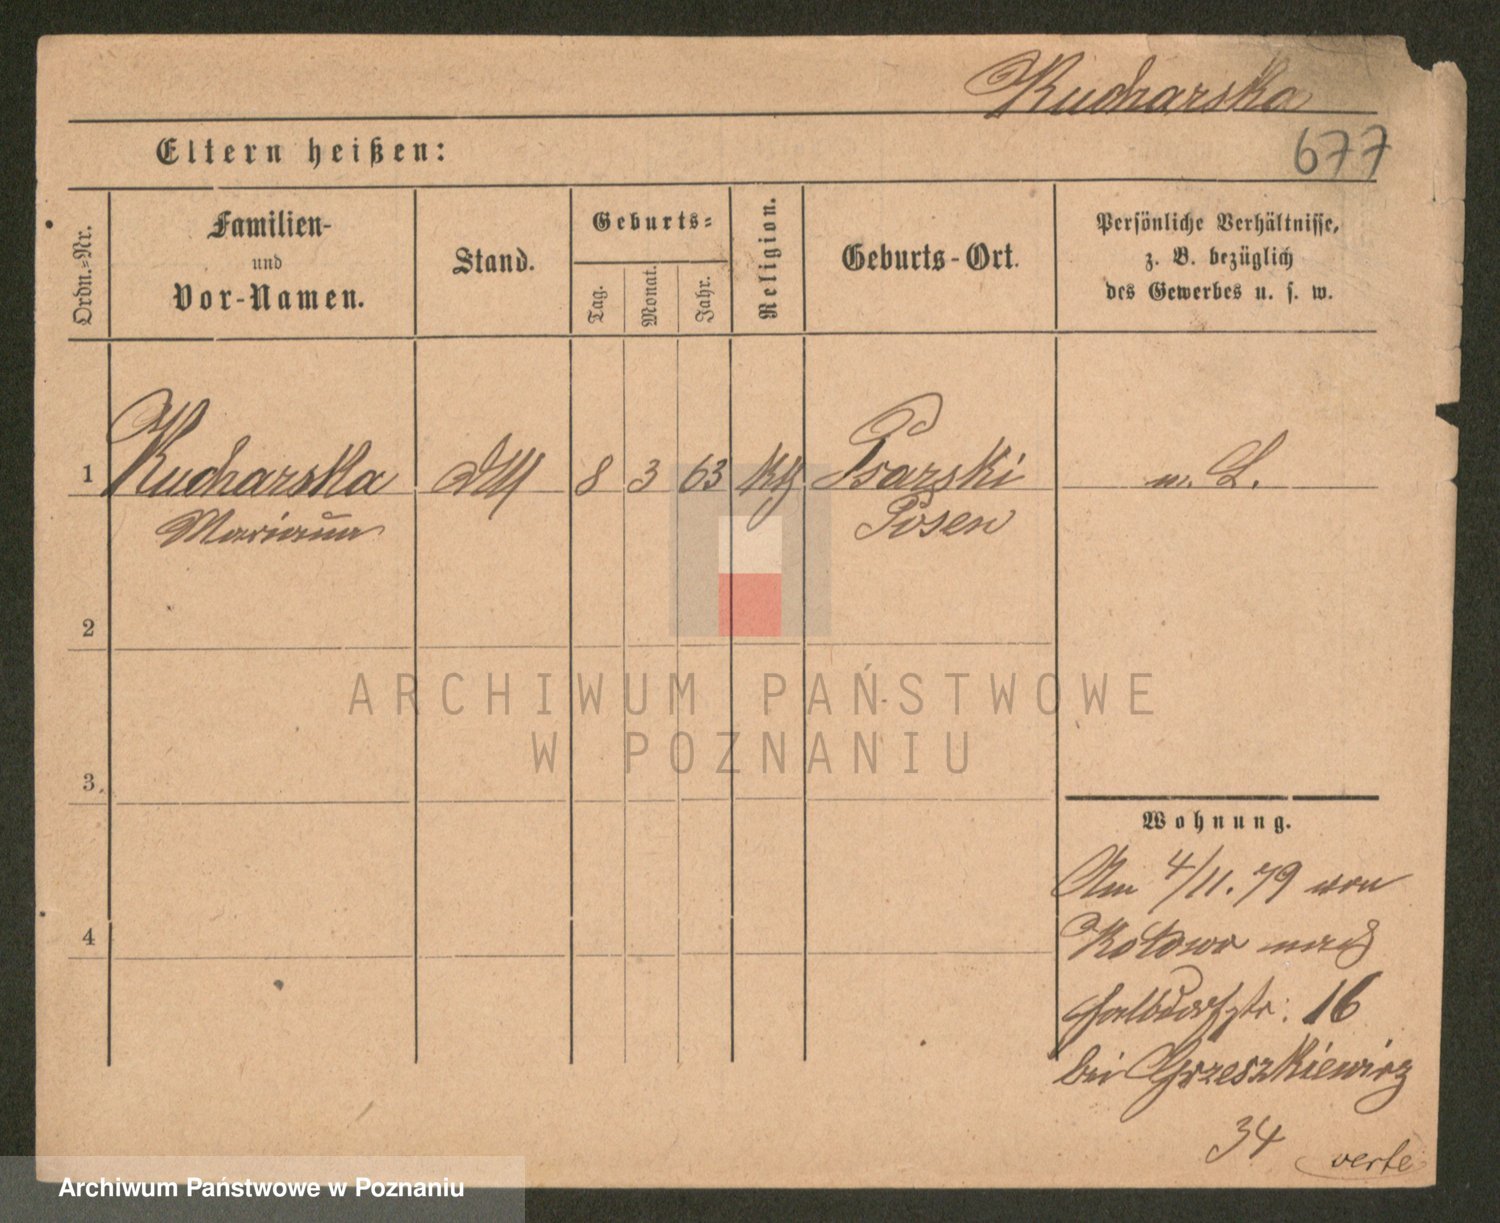 Kucharska
677
Eltern heißen:
Ordn.-Nr.
Familien-
und
Vor-Namen.
Stand.
Geburts-
Tag.
Monat.
Jahr.
Religion.
Geburts-Ort.
Persönliche Verhältnisse,
z. B. bezüglich
des Gewerbes u. s. w.
1 Kucharska 8 3 63 kth Psarski
Mariann Posen
2
3
4
ARCHIWUM PAŃSTWOWE
W POZNANIU
Wohnung.
Am 4/11. 79 von
Kotowo nach
Halbdorfstr: 16
bei Grzeszkiewicz
34
verte
Archiwum Państwowe w Poznaniu